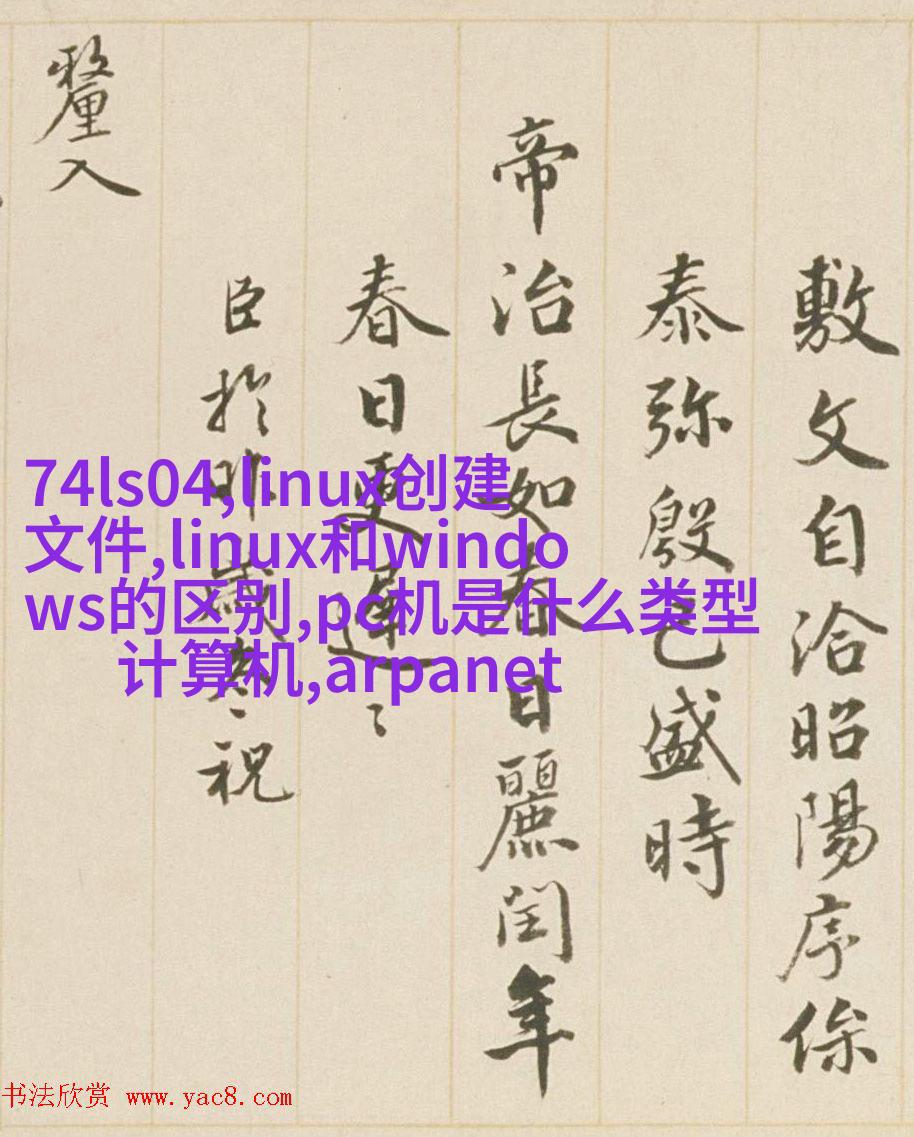 敷文自洽昭陽序保
泰弥殷已盛時
帝治長如春日麗閏年
春日更遲〻
臣於昨歲冬祝
釐入
74ls04,linux创建
文件,linux和windo
ws的区别,pc机是什么类型
计算机,arpanet
书法欣赏 www.yac8.com